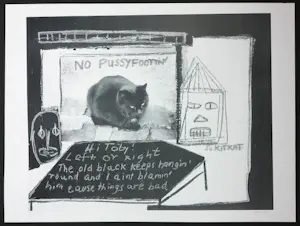 NO PUSSYFOOTIN'
Hi Toby!
Left or right
The old black keeps hangin'
'round and I aint blamin'
him cause things are bad